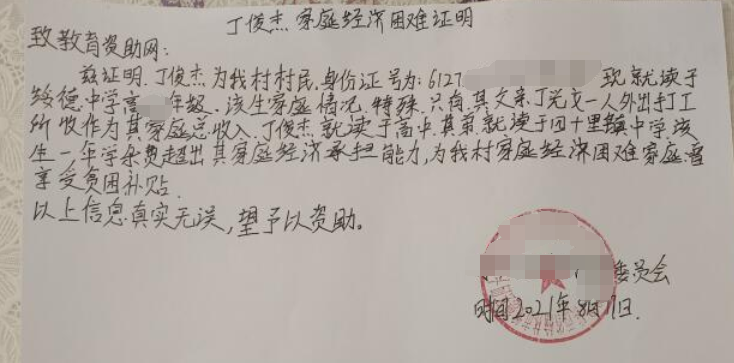 丁俊杰家庭经济困难证明
致教育资助网：
兹证明,丁俊杰为我村村民,身份证号为:6127 现就读于
绥德中学高 年级、该生家庭情况特殊,只有其父亲丁光文一人外出打工
所收作为其家庭总收入、丁俊杰就读于高中,其弟就读于四十里镇中学,该
生一年学杂费超出其家庭经济承担能力,为我村家庭经济困难家庭需
享受贫困补贴.
以上信息真实无误,望予以资助。
委员会
时间2021年8月 日.